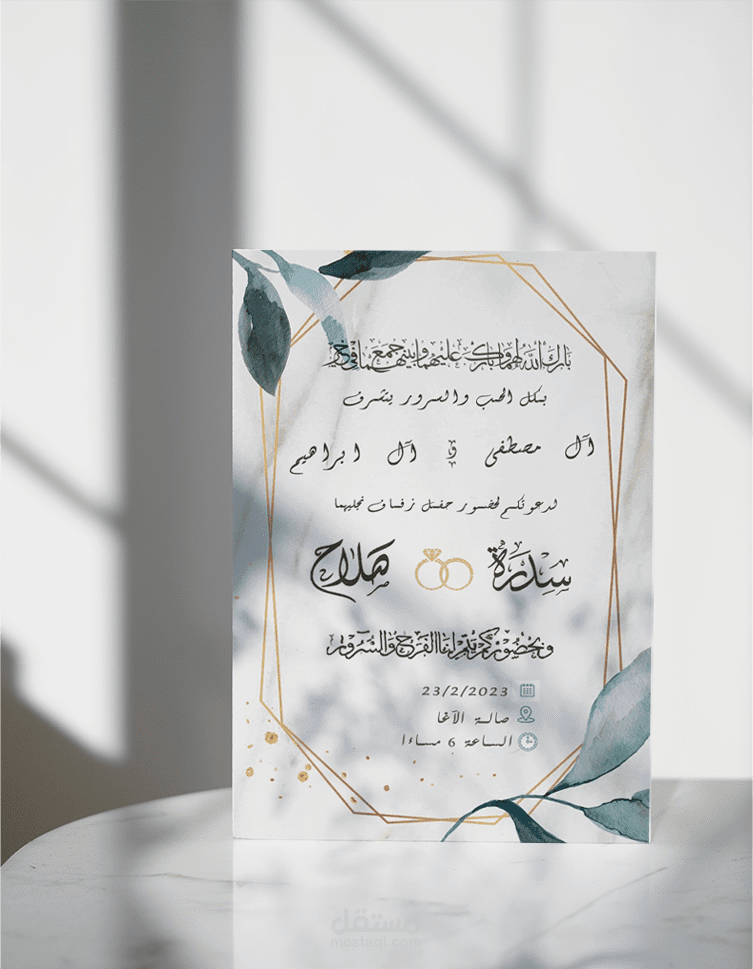 بارك الله لهما وبارك عليهما وجمع بينهما في خير
بكل الحب والسرور يتشرف
آل مصطفى و آل ابراهيم
لدعوتكم لحضور حفل زفاف نجليهما
سدرة صلاح
وبحضوركم يتم لنا الفرح والسرور
23/2/2023
صالة الآغا
الساعة 6 مساءا
مستقل
mostaql.com